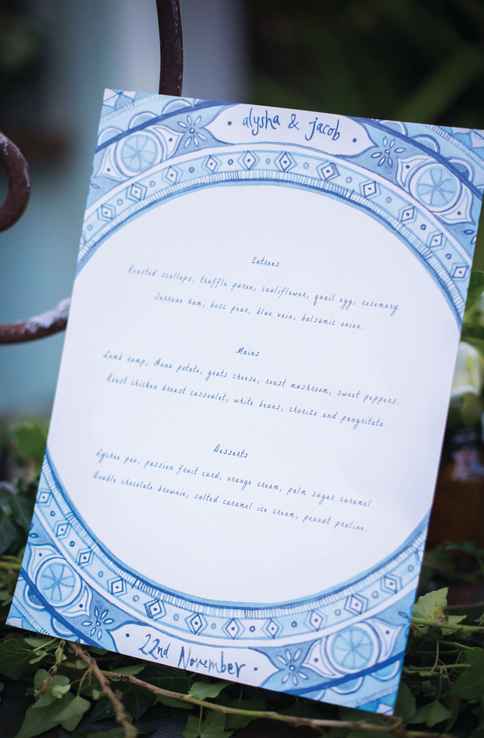 alysha & jacob
Entrees
Roasted scallops, truffle puree, cauliflower, quail egg, rosemary
Serrano ham, bosc pear, blue vein, balsamic onion.
Mains
Lamb rump, potato, goats cheese, roast mushroom, sweet peppers.
Roast chicken breast cassoulet, white beans, chorizo and
Desserts
Lychee passion fruit curd, orange cream, palm sugar caramel
Double chocolate brownie, salted caramel ice cream, peanut praline.
22nd November